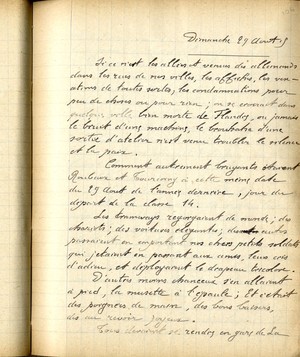 Dimanche 29 Août 15
Si ce n'est les allers et venues des allemands
dans les rues de nos villes, les affiches, les vex-
ations de toutes sortes, les condamnations pour
peu de choses ou pour rien ; on se croirait dans
quelque ville bien morte de Flandre, ou jamais
le bruit d'une machine, le brouhaha d'une
sortie d'atelier n'est venu troubler le silence
et la paix.
Combien autrement bruyants étaient
Roubaix et Tourcoing à cette même date
du 29 Août de l'année dernière, jour du
départ de la classe 14.
Les tramways regorgeaient de monde ; des
chariots ; des voitures élégantes ; des autos
passaient en emportant nos chers petits soldats
qui jetaient en passant aux amis, leurs cris
d'adieu, et déployaient le drapeau tricolore.
D'autres moins chanceux s'en allaient
à pied, la musette à l'épaule ; Et c'était
des poignées de main, des bons baisers,
des au revoir joyeux
Tous devaient se rendre en gare de La